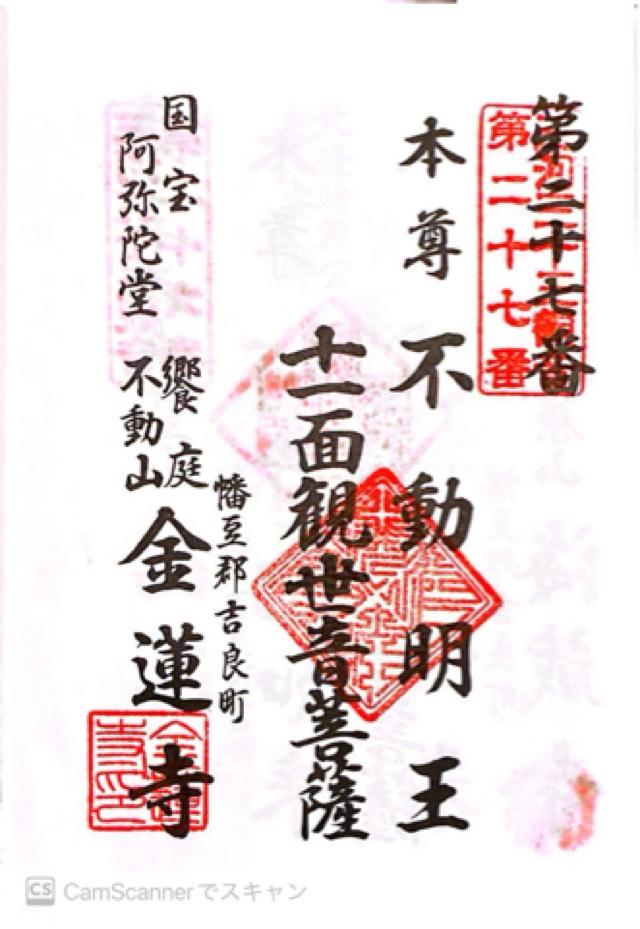 第二十七番
第二十七番
本尊 不動明王
十一面観世音菩薩
幡豆郡吉良町
国宝 饗庭
阿弥陀堂 不動山 金蓮寺
CS CamScanner でスキャン